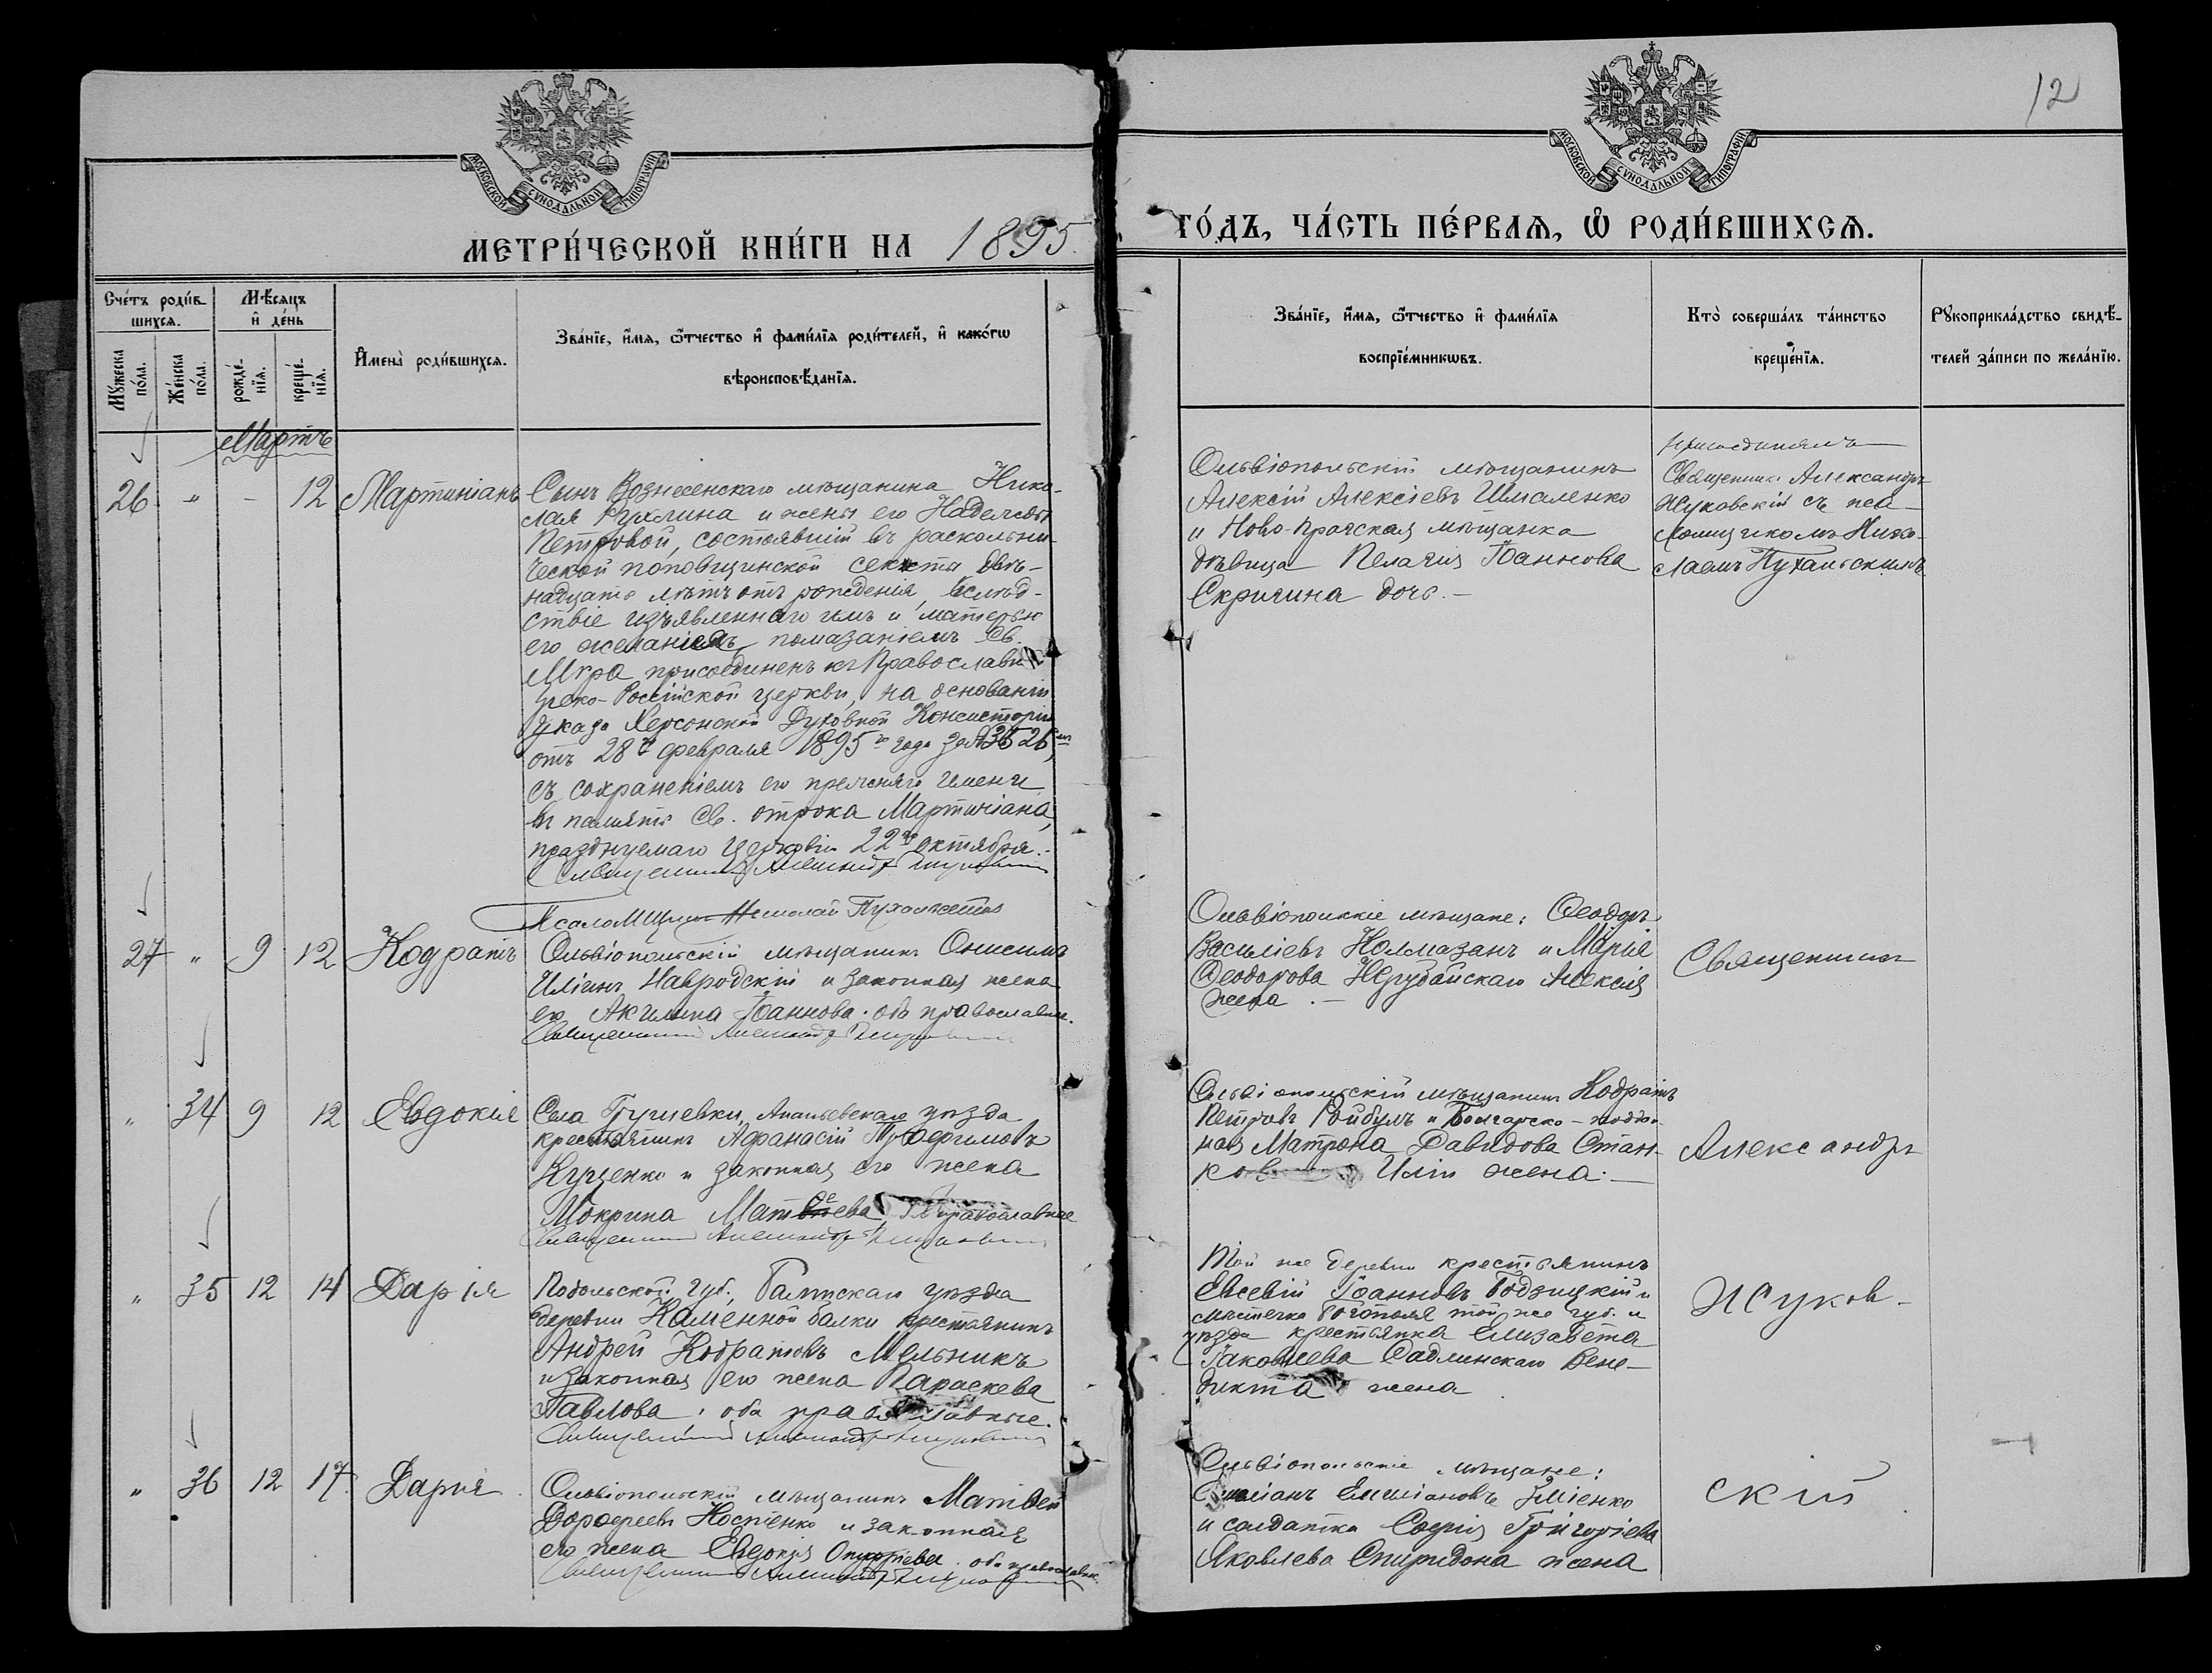 12
МОСКОВСКОЙ СѴНОДАЛЬНОЙ ТИПОГРАФІИ
МОСКОВСКОЙ СѴНОДАЛЬНОЙ ТИПОГРАФІИ
МЕТРИ́ЧЕСКОЙ КНИ́ГИ НА 1895
ГО́ДЪ, ЧА́СТЬ ПЕ́РВАѦ, Ѡ҆ РОДИ́ВШИХСѦ.
Сче́тъ роди́в-
шихсѧ.
Мꙋ́жеска по́ла.
Же́нска по́ла.
Мѣ́сѧцъ
и҆ де́нь
рожде́-
нїѧ.
креще́-
нїѧ.
И҆мена̀ роди́вшихсѧ.
Зва́нїе, и҆́мѧ, ѻ҆́тчество и҆ фами́лїѧ роди́телей, и҆ како́гѡ
вѣроисповѣ́данїѧ.
Зва́нїе, и҆́мѧ, ѻ҆́тчество и҆ фами́лїѧ
воспрїе́мникѡвъ.
Кто̀ соверша́лъ та́инство
креще́нїѧ.
Рꙋкоприкла́дство свидѣ́-
телей за́писи по жела́нїю.
Мартъ
26 " - 12 Мартиніанъ
Сынъ Вознесенскаго мѣщанина Нико-
лая и жены его Надежды
Петровой, состоявшій въ расколни-
ческой поповщинской секты двѣ-
надцать лѣтъ отъ рожденія, вслѣд-
ствіе изъявленнаго имъ и матерью
его желанія, помазаніемъ Св.
Мѵра присоединенъ къ Православн
Греко-Россійской церкви, на основаніи
Указа Херсонской Духовной Консисторіи
отъ 28го февраля 1895го года за №
съ сохраненіемъ его прежняго имени
въ память Св. отрока Мартиніана,
празднуемаго Церковію 22го октября.
Священникъ Александръ Жуковскій
Псаломщикъ Николай
Ольвіопольскій мѣщанинъ
Алексій Алексіевъ Шмаленко
и Ново-Прагская мѣщанка
дѣвица Пелагія Іоаннова
Скригина дочь.
присоединялъ
Священникъ Александръ
Жуковскій съ пса-
ломщикомъ Нико-
лаемъ
27 " 9 12 Кодратъ
Ольвіопольскій мѣщанинъ Онисимъ
Иліинъ Навродскій и законная жена
его Акилина Іоаннова. оба православные.
Священникъ Александръ Жуковскій
Ольвіопольскіе мѣщане: Ѳеодоръ
Василіевъ Колмазанъ и Марія
Ѳеодорова Нерубайскаго Алексія
жена.
Священникъ
" 34 9 12 Евдокія
Села Ананьевскаго уѣзда
крестьянинъ Аѳанасій
Куценко и законная его жена
Мокрина православные
Священникъ Александръ Жуковскій
Ольвіопольскій мѣщанинъ Кодратъ
Петровъ Ройбулъ и Болгарско-поддан-
ная Матрона Давидова Стан-
Иліи жена.
Александръ
" 35 12 14 Дарія
Подольской губ., Балтскаго уѣзда
деревни Каменной балки крестьянинъ
Андрей Кодратовъ Мельникъ
и законная его жена Параскева
Павлова. оба православные.
Священникъ Александръ Жуковскій
Той же деревни крестьянинъ
Евсевій Іоанновъ и
мѣстечка той же губ. и
уѣзда крестьянка Елизавета
Іаковлева Садлинскаго Вене-
дикта жена
Жуков-
" 36 12 17 Дарія
Ольвіопольскій мѣщанинъ Матвей
Дороѳеевъ Костенко и законная
его жена Евдокія оба православные.
Священникъ Александръ Жуковскій
Ольвіопольскіе мѣщане:
Емиліановъ Зміенко
и солдатка Софія Григоріева
Яковлева Спиридона жена
скій